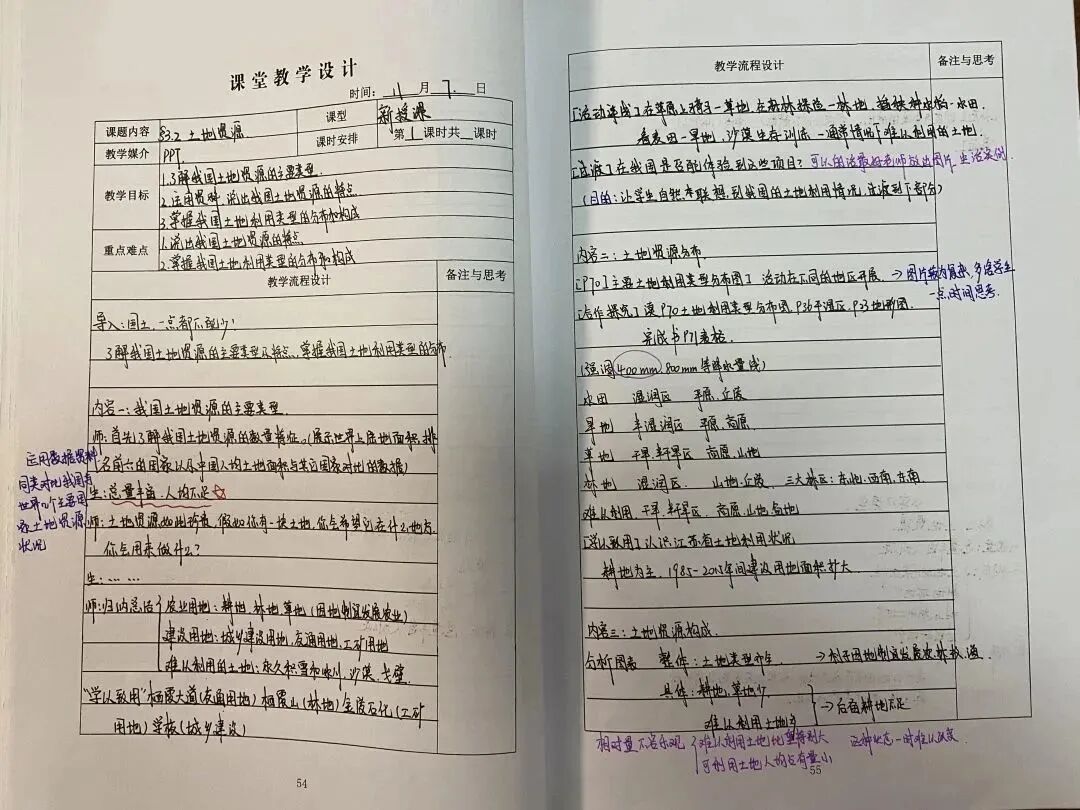 课堂教学设计
时间：11月7日
课题内容 §3.2 土地资源 课型 新授课
课时安排 第1课时共 课时
教学媒介 PPT.
教学目标 1.了解我国土地资源的主要类型.
2.运用资料,说出我国土地资源的特点
3.掌握我国土地利用类型的分布和构成
重点难点 1.说出我国土地资源的特点
2.掌握我国土地利用类型的分布和构成
教学流程设计 备注与思考
导入:国土,一点都不能少!
了解我国土地资源的主要类型及特点,掌握我国土地利用类型的分布.
内容一:我国土地资源的主要类型.
师:首先了解我国土地资源的数量特征。(展示世界上陆地面积排
名前六的国家以及中国人均土地面积与其它国家对比的数据)
生:总量丰富,人均不足☆
师:土地资源如此珍贵,假如你有一块土地,你会希望它在什么地方,
你会用来做什么?
生:……
师:归纳总结 农业用地:耕地,林地,草地(因地制宜发展农业)
建设用地:城乡建设用地,交通用地,工矿用地
难以利用的土地:永久积雪和冰川,沙漠,戈壁.
"学以致用"栖霞大道(交通用地)栖霞山(林地)金陵石化(工矿
用地)学校(城乡建设)
运用数据资料
同类对比我国与
世界几个主要国
家土地资源
状况
54
教学流程设计 备注与思考
[活动连线]在草原上骑马-草地,在森林探险-林地,插秧种水稻-水田.
看麦田-旱地,沙漠生存训练-通常情况下难以利用的土地.
[过渡]在我国是否能体验到这些项目?可以的话最好老师放出图片,生活实例
(目的:让学生自然本联想到我国的土地利用情况,过渡到下部分)
内容二:土地资源分布
[P70]主要土地利用类型分布图] 活动在不同的地区开展. →图片较为复杂,多给学生
一点时间思考.
[合作探究]读P70土地利用类型分布图,P36干湿区,P23地形图.
完成书P71表格
(强调400mm,800mm等降水量线)
水田 湿润区 平原,丘陵
旱地 半湿润区 平原,高原
草地 干旱半干旱区 高原,山地
林地 湿润区. 山地,丘陵, 三大林区:东北,西南,东南.
难以利用,干旱半干旱区,高原,山地,盆地
[学以致用]认识江苏省土地利用状况
耕地为主,1985-2015年间建设用地面积扩大
内容三:土地资源构成.
分析图表 整体:土地类型齐全 →利于因地制宜发展农,林,牧,渔.
具体:耕地,草地少
难以利用土地多 →后备耕地不足
相对量不容乐观 难以利用土地比重特别大 这种状态一时难以改变
可利用土地人均占有量小
55